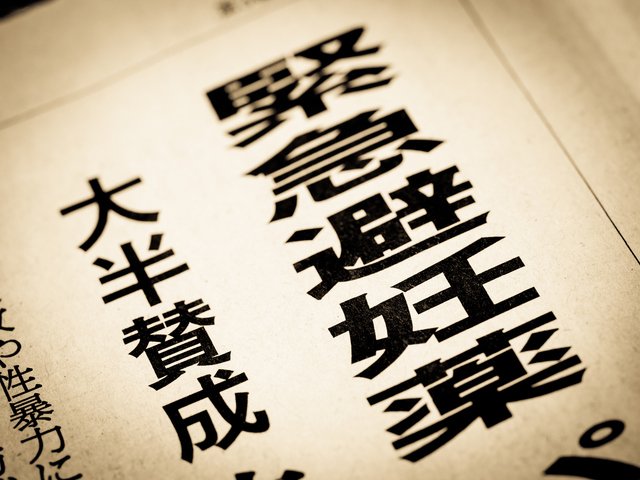 緊急避妊薬
大半賛成
性暴力に